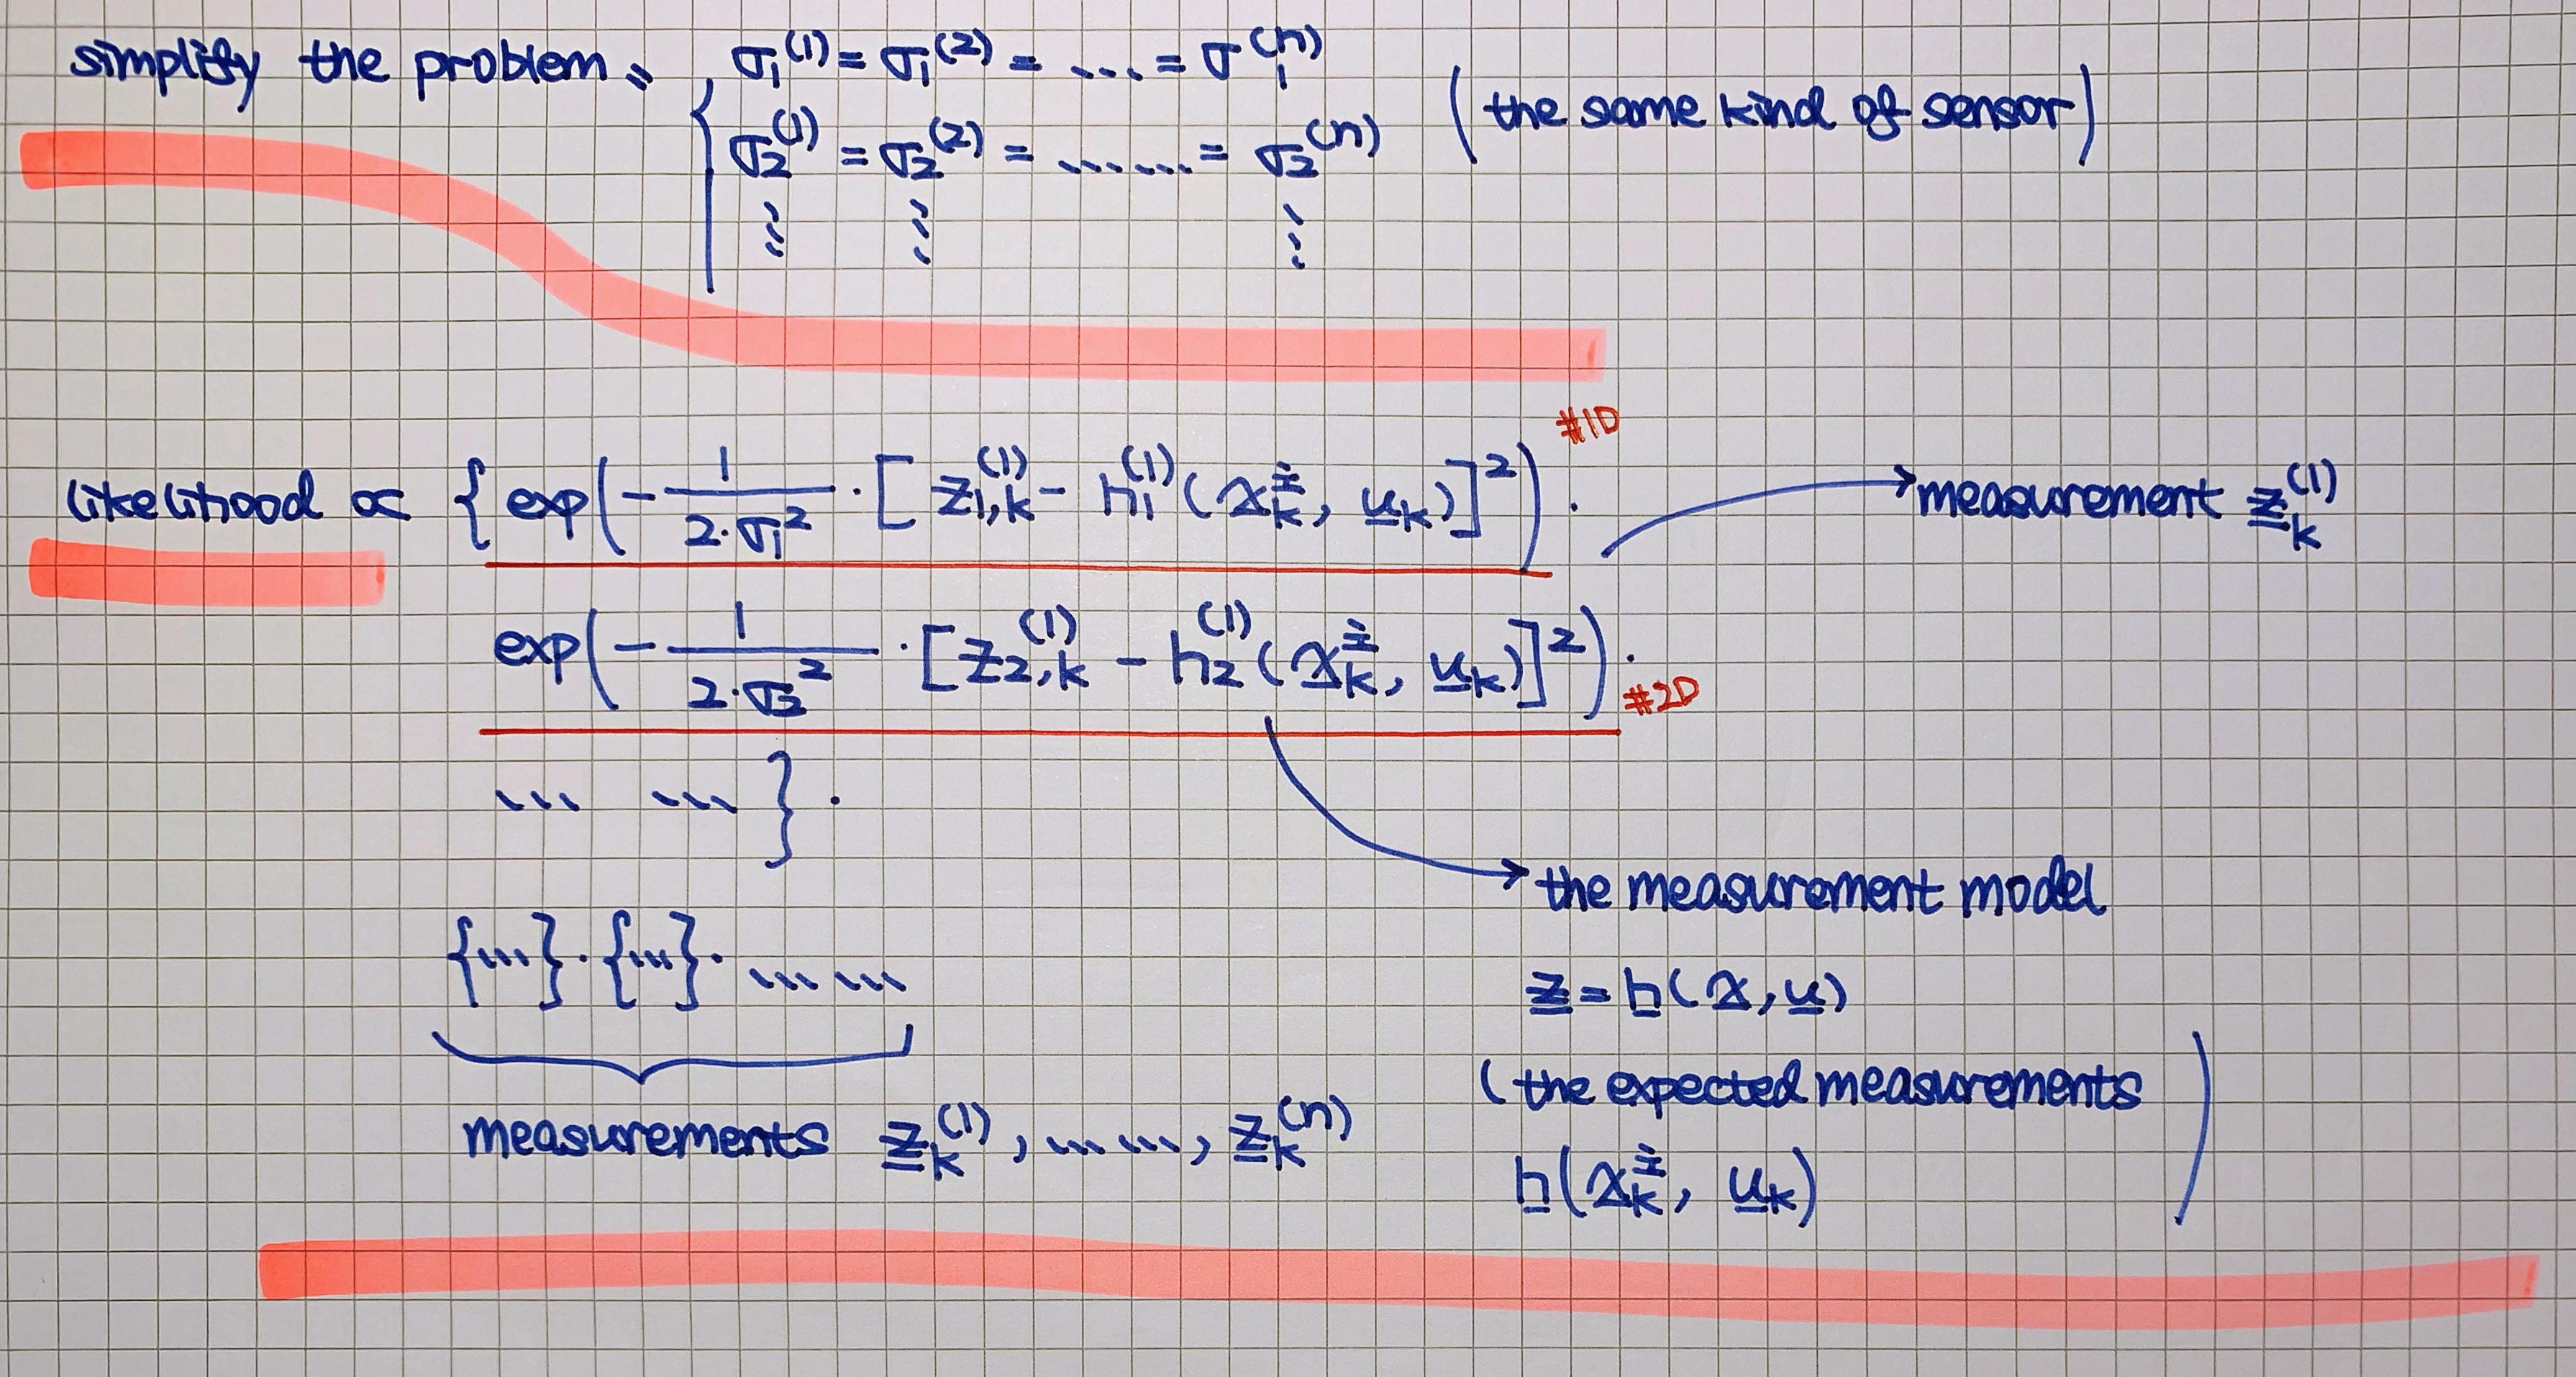 simplify the problem: σ₁⁽¹⁾ = σ₁⁽²⁾ = ... = σ₁⁽ⁿ⁾
σ₂⁽¹⁾ = σ₂⁽²⁾ = ...... = σ₂⁽ⁿ⁾ (the same kind of sensor)
⋮ ⋮ ⋮
#1D
likelihood ∝ { exp(-1/(2·σ₁²) · [z_{1,k}^{(1)} - h_1^{(1)}(x_k^i, u_k)]²) · → measurement z_k^{(1)}
exp(-1/(2·σ₂²) · [z_{2,k}^{(1)} - h_2^{(1)}(x_k^i, u_k)]²) · #2D
... ... } ·
→ the measurement model
{...} · {...} · ... ...
z = h(x, u)
(the expected measurements
measurements z_k^{(1)}, ... ..., z_k^{(n)}
h(x_k^i, u_k))